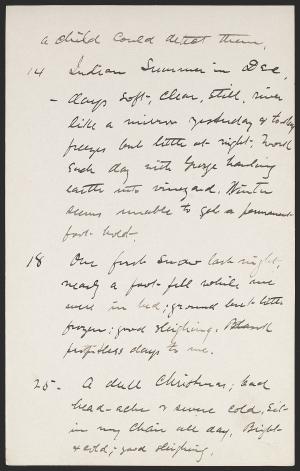 a child could detect them.
14 Indian Summer in Dec,
- days soft, clear, still, river
like a mirror yesterday & to-day
freezes but little at night. I work
each day with George hauling
earth into vineyard. Winter
seems unable to get a permanent
foot-hold.
18 Our first snow last night,
nearly a foot-fell while we
were in bed; ground but little
frozen; good sleighing. Blank
profitless days to me.
25- A dull Christmas; bad
head-ache & severe cold. Sit
in my chair all day. Bright
& cold; good sleighing.